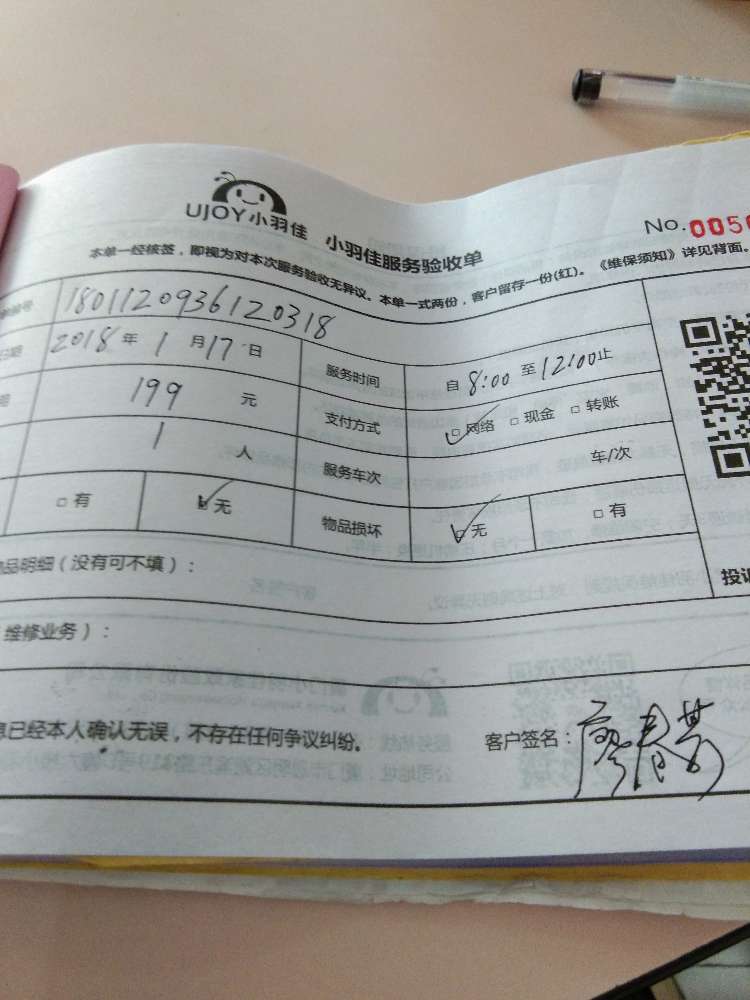 UJOY小羽佳 小羽佳服务验收单
No.005
本单一经核签，即视为对本次服务验收无异议。本单一式两份，客户留存一份(红)。《维保须知》详见背面。
编号 1801120936120318
日期 2018年1月17日 服务时间 自8:00至12:00止
199元 支付方式 □网络 □现金 □转账
1人 服务车次 车/次
□有 □无 物品损坏 □无 □有
品明细（没有可不填）：
投诉
维修业务）：
息已经本人确认无误，不存在任何争议纠纷。 客户签名：廖春